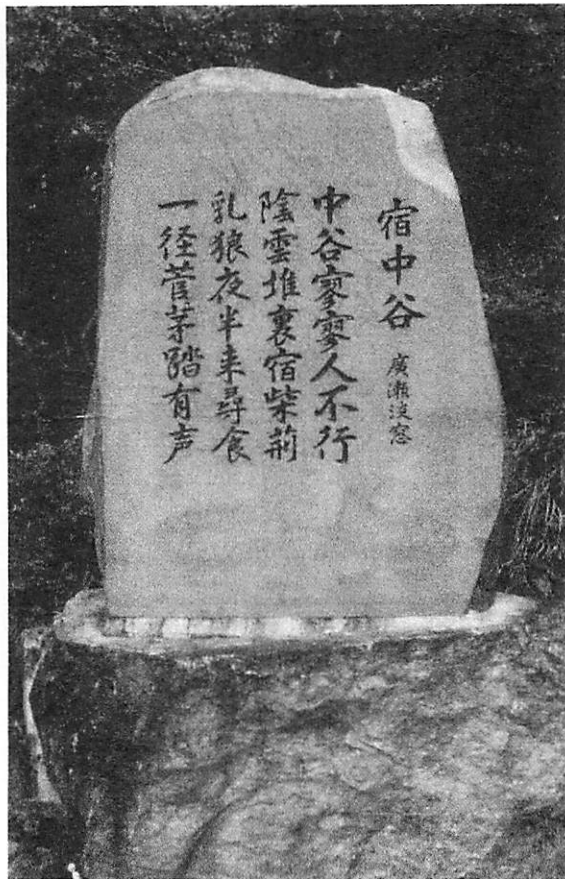 宿中谷 廣瀬淡窓
中谷寥寥人不行
陰雲堆裏宿柴荊
乳狼夜半来尋食
一径菅茅踏有声